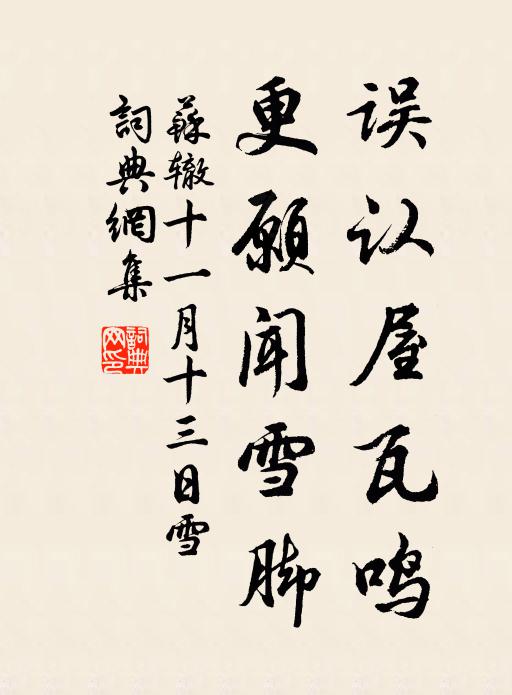 误认屋瓦鸣
更愿闻雪脚
蘇辙十一月十三日雪
詞典網集
詞典
网印